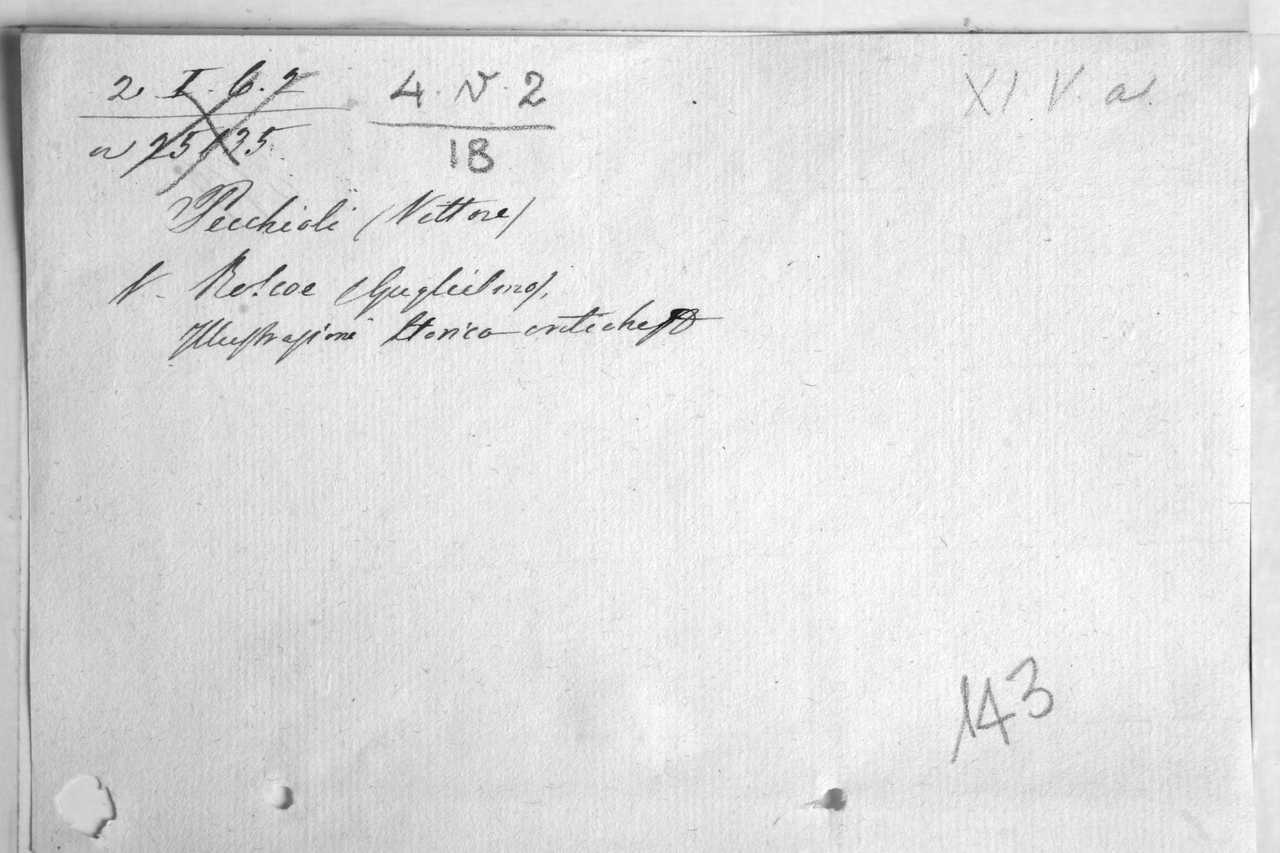 2. I. 6. 2 4. N. 2 XI. V. a.
25 35 18
Pecchioli (Vittore)
V. Roscoe (Guglielmo),
Illustrazioni Storico critiche
143